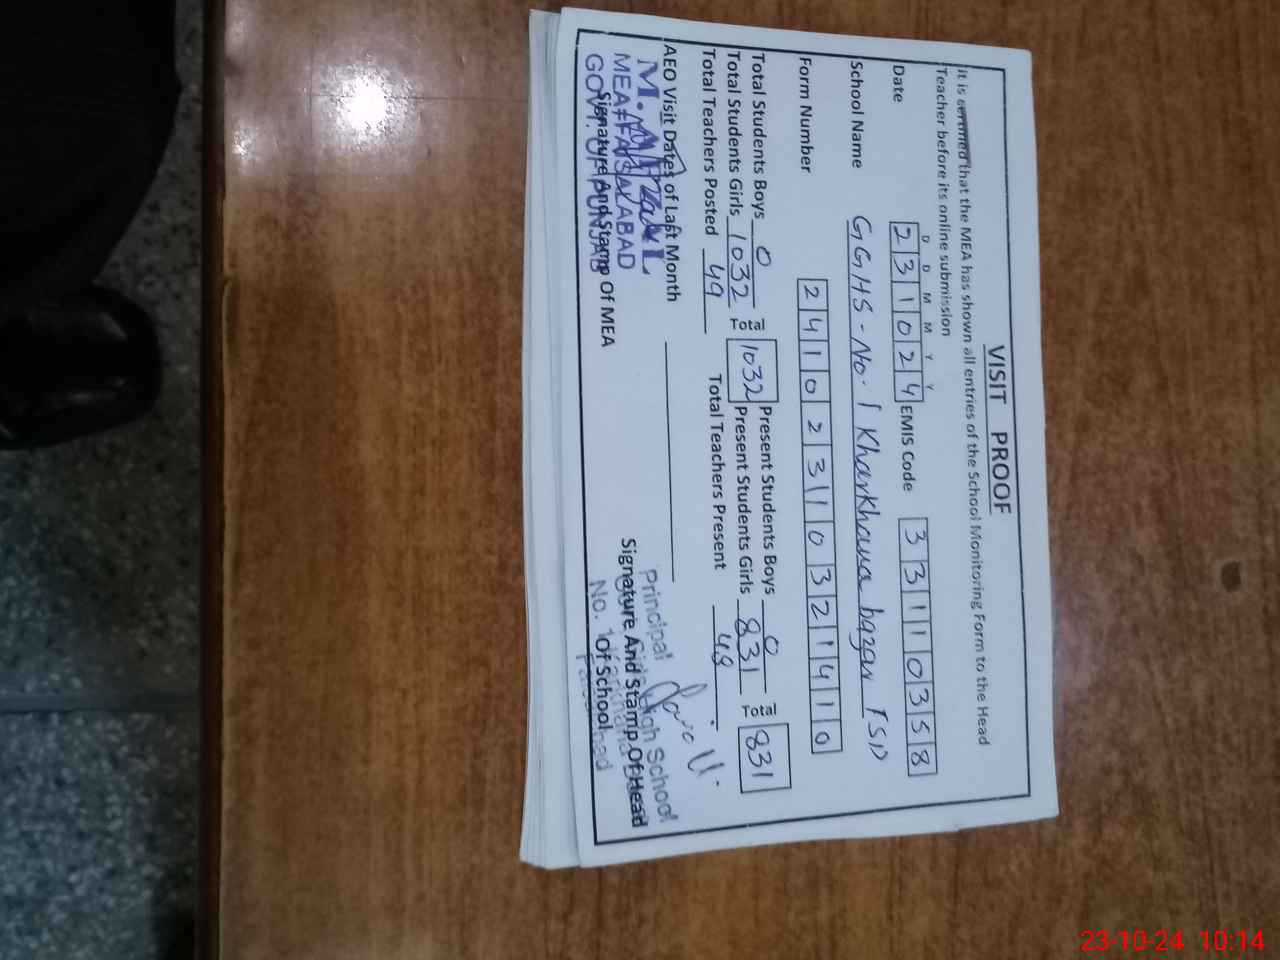 VISIT PROOF
It is certified that the MEA has shown all entries of the School Monitoring Form to the Head
Teacher before its online submission
D D M M Y Y
Date 2 3 1 0 2 4 EMIS Code 3 3 1 1 0 3 5 8
School Name GGHS-No.1 Kharkhana bazar FSD
Form Number 2 4 1 0 2 3 1 1 0 3 2 1 4 1 0
Total Students Boys 0 Present Students Boys 0
Total Students Girls 1032 Total 1032 Present Students Girls 831 Total 831
Total Teachers Posted 49 Total Teachers Present 48
AEO Visit Dates of Last Month
MEA FAISALABAD
GOVT. OF PUNJAB
Signature And Stamp Of MEA
Principal
High School
No. 1
Signature And Stamp Of Head
Of School
23-10-24 10:14